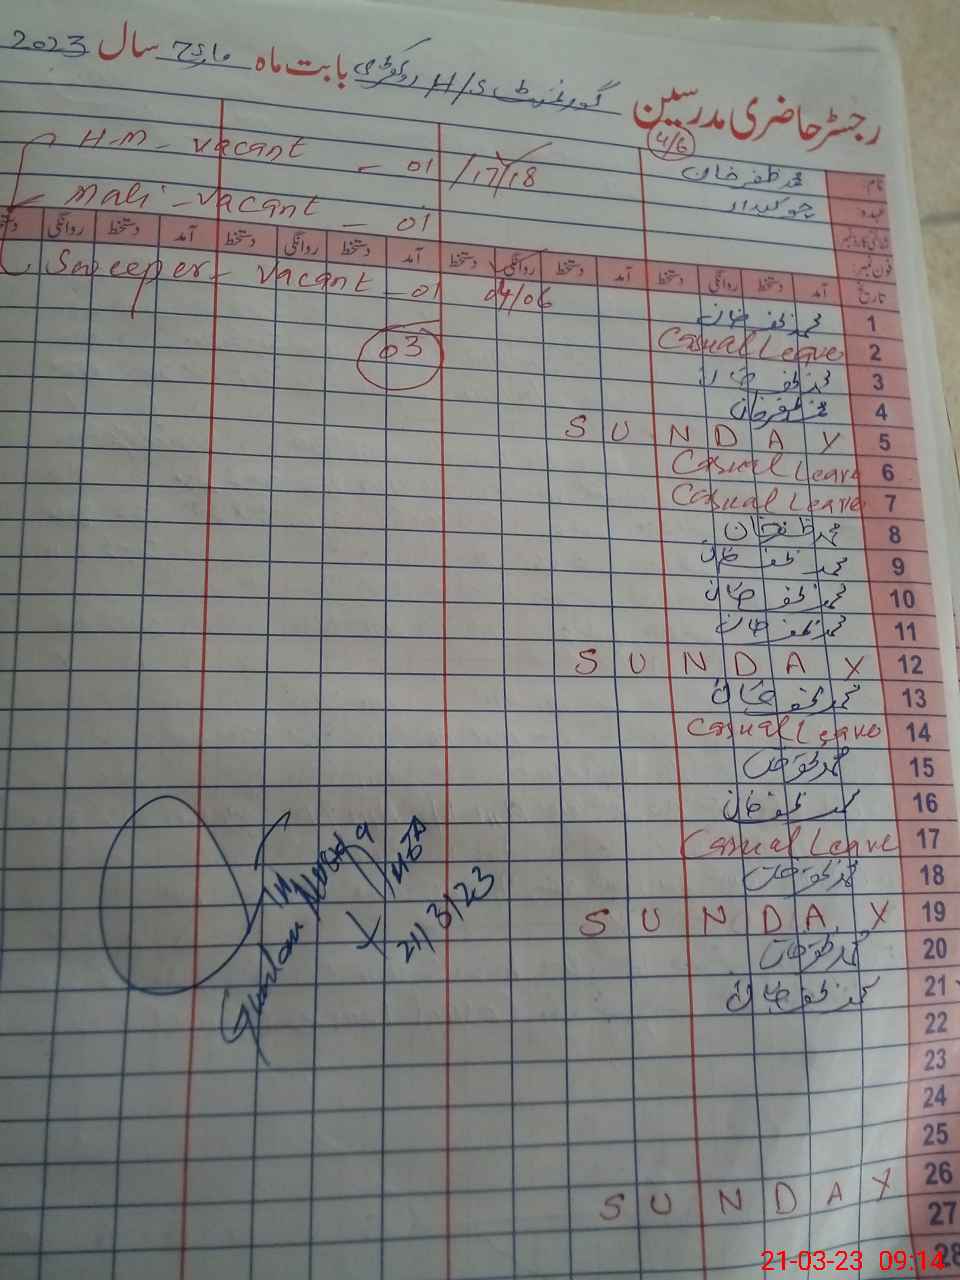 رجسٹر حاضری مدرسین گورنمنٹ H/S بابت ماہ مارچ سال 2023
4/6
نام محمد ظفر خان
عہدہ چوکیدار
شناختی کارڈ نمبر
فون نمبر
H.M - vacant - 01 /17/18
Mali - vacant - 01
Sweeper - vacant - 01 04/06
03
تاریخ آمد دستخط روانگی دستخط آمد دستخط روانگی دستخط آمد دستخط روانگی دستخط آمد دستخط روانگی
1 محمد ظفر خان
2 Casual Leave
3 محمد ظفر خان
4 محمد ظفر خان
5 SUNDAY
6 Casual Leave
7 Casual Leave
8 محمد ظفر خان
9 محمد ظفر خان
10 محمد ظفر خان
11 محمد ظفر خان
12 SUNDAY
13 محمد ظفر خان
14 Casual Leave
15 محمد ظفر خان
16 محمد ظفر خان
17 Casual Leave
18 محمد ظفر خان
19 SUNDAY
20 محمد ظفر خان
21 محمد ظفر خان
22
23
24
25
26 SUNDAY
27
28
21/3/23
21-03-23 09:14